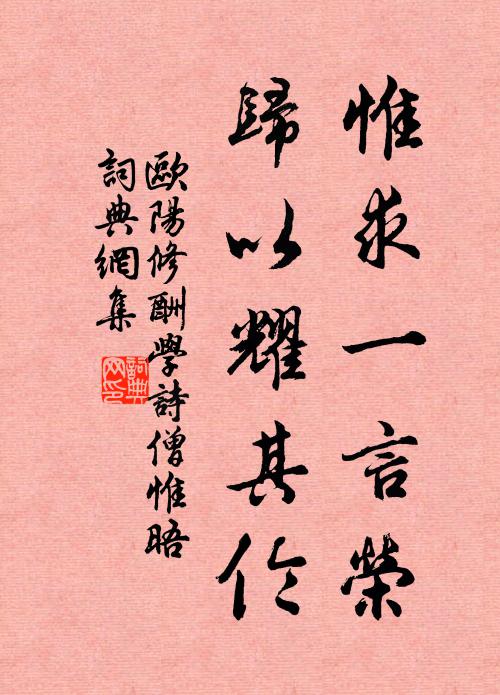 惟求一言榮
歸以耀其伦
歐陽修酬學詩僧惟晤
詞典網集
詞典網印